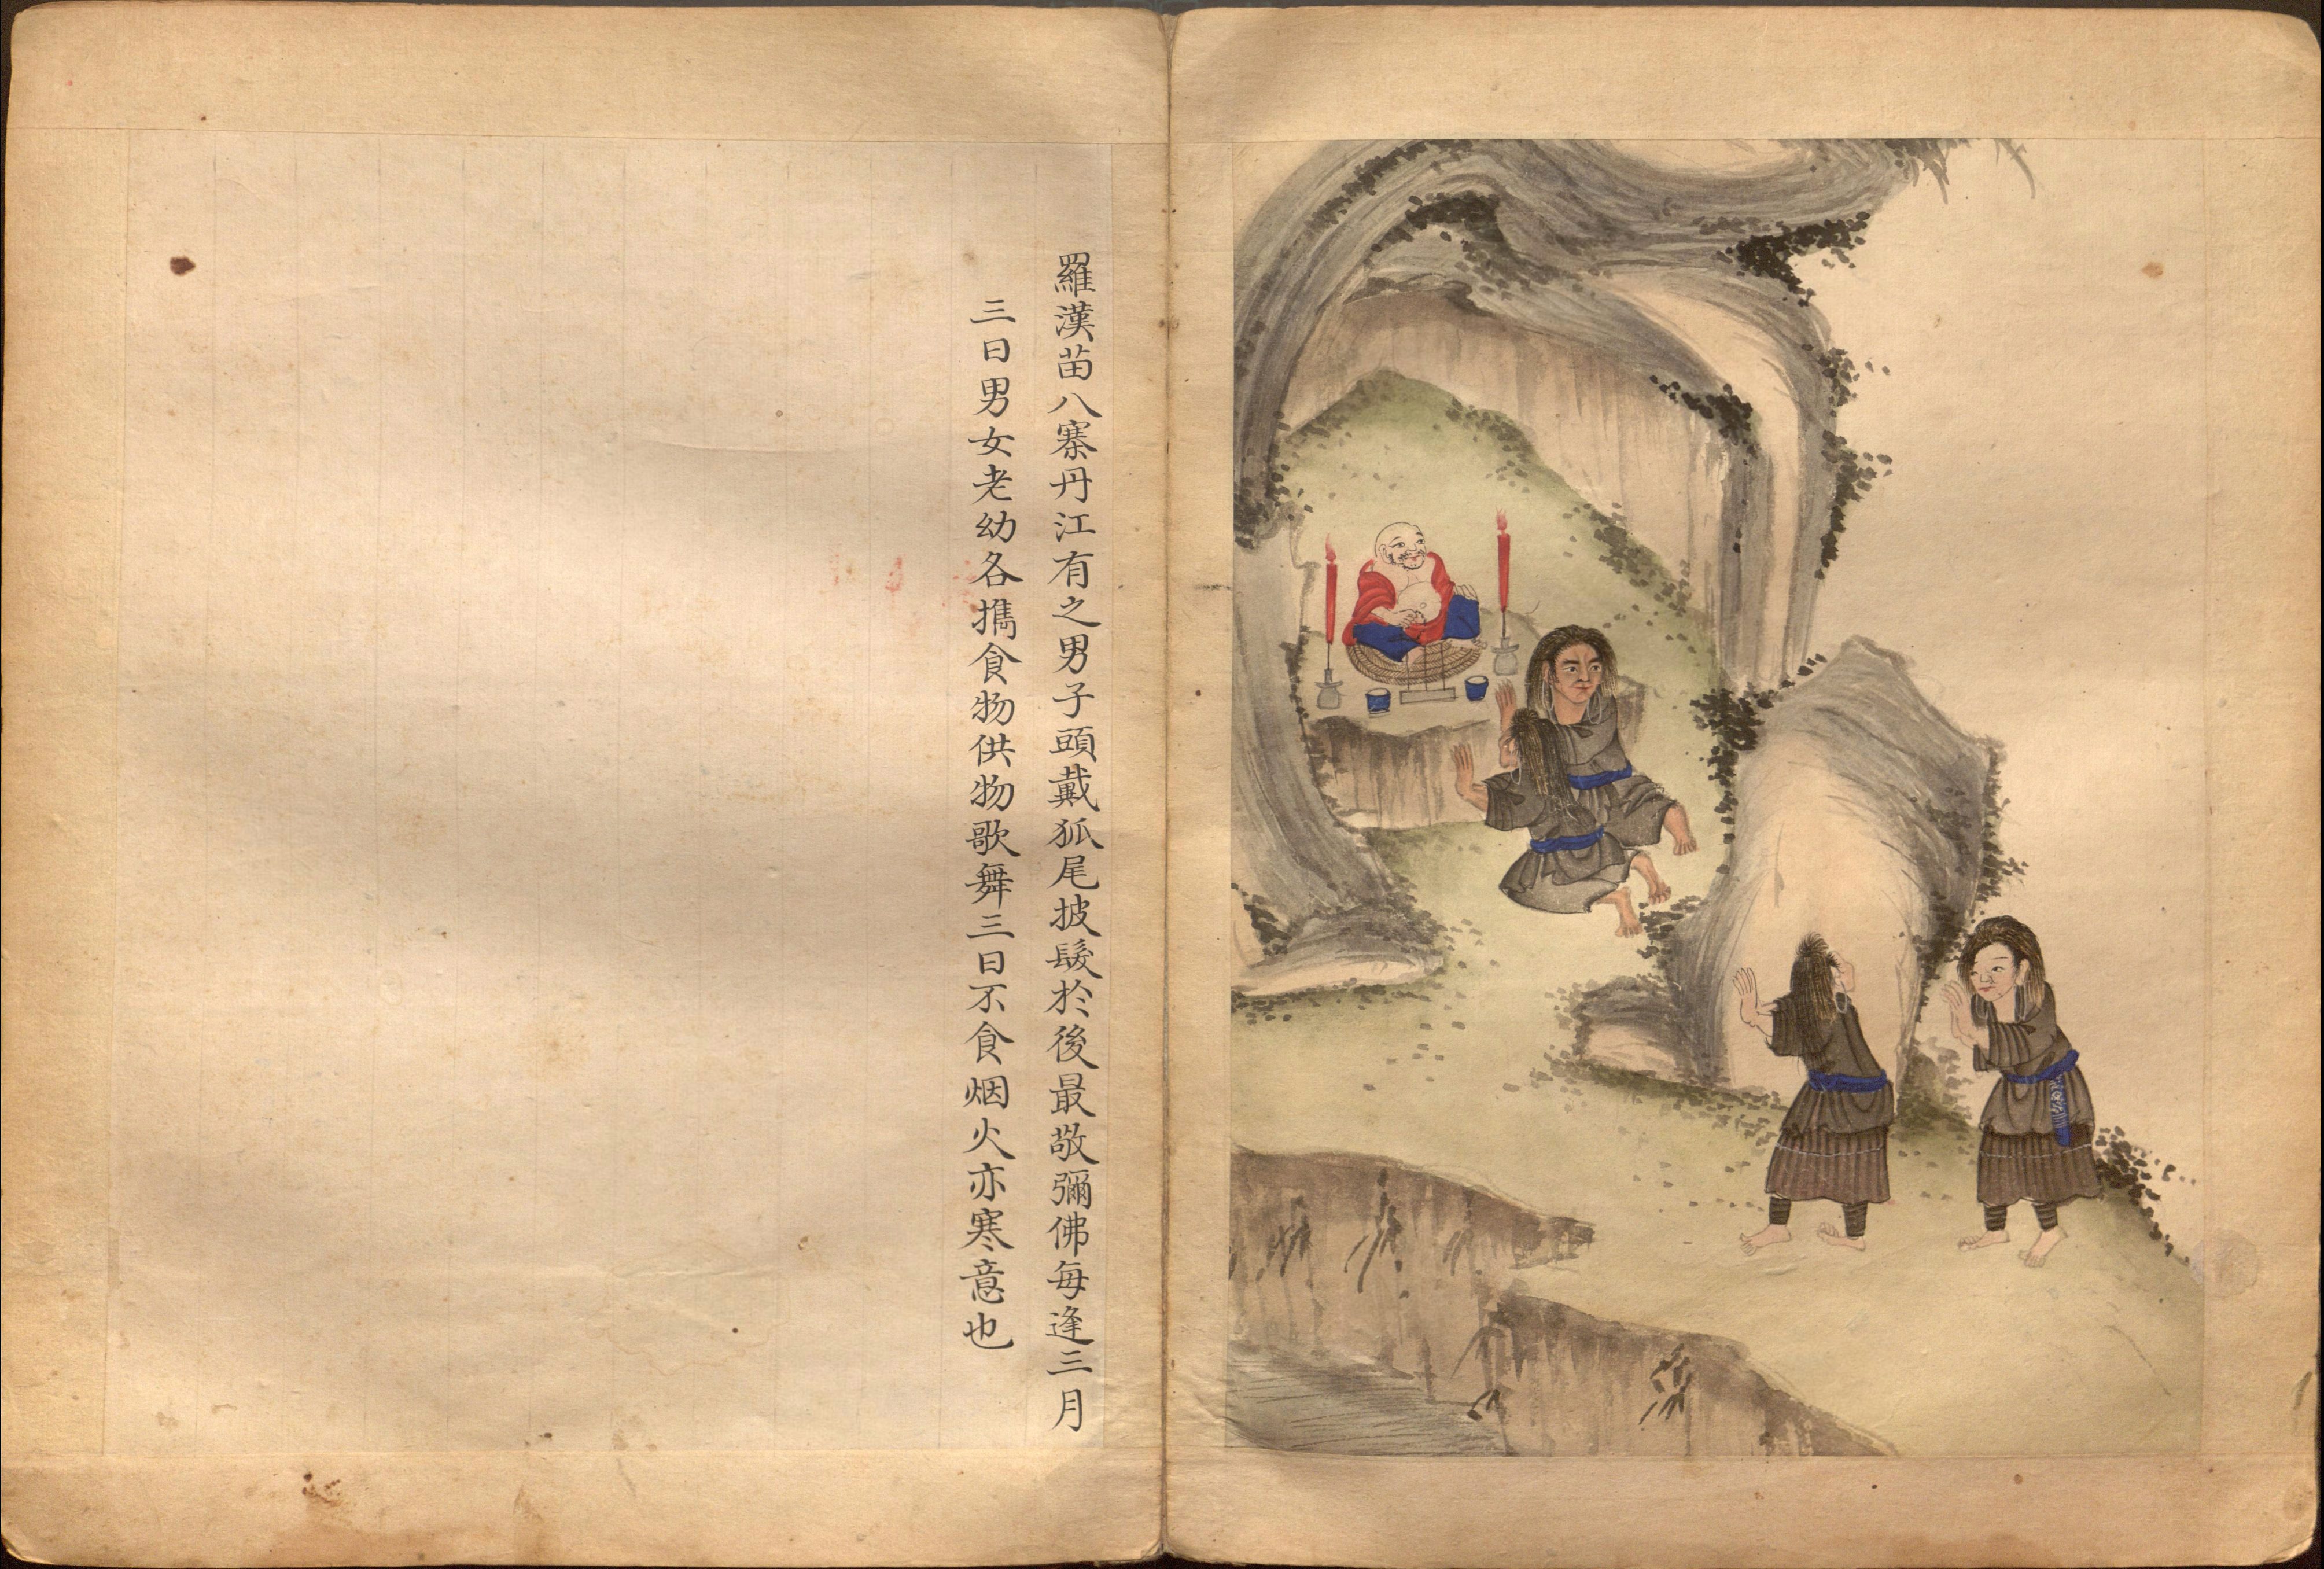 羅漢苗八寨丹江有之男子頭戴狐尾披髮於後最敬彌佛每逢三月
三日男女老幼各攜食物供物歌舞三日不食烟火亦寒意也